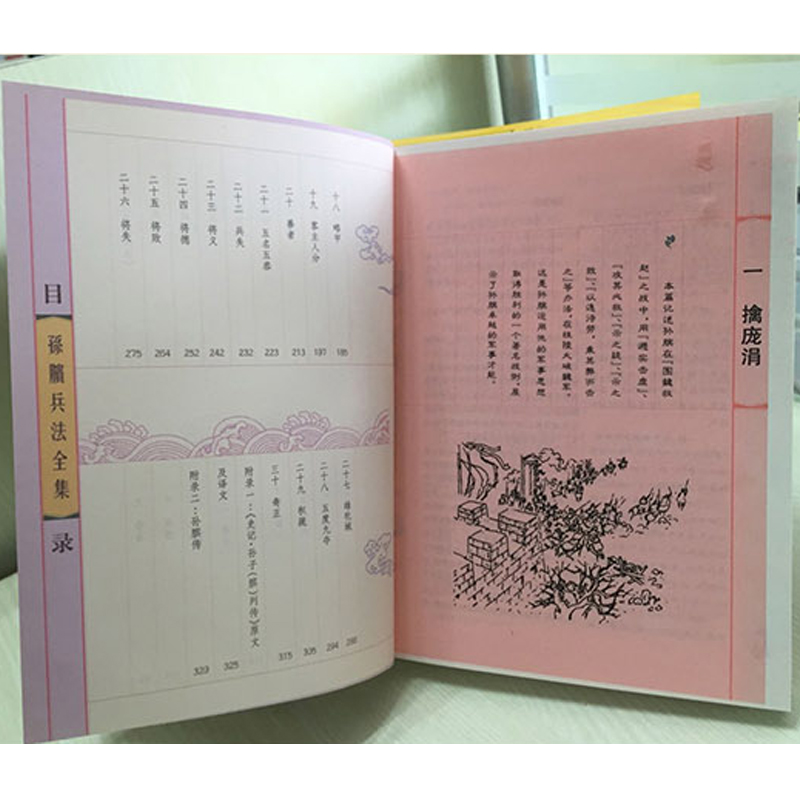 目
孫臏兵法全集
录
十八 略甲 185
十九 客主人分 197
二十 善者 213
二十一 五名五恭 223
二十二 兵失 232
二十三 将义 242
二十四 将德 252
二十五 将败 264
二十六 将失 275
二十七 雄牝城 286
二十八 五度九夺 294
二十九 积疏 305
三十 奇正 315
附录一：《史记·孙子(膑)列传》原文
及译文 325
附录二：孙膑传 329
一 擒庞涓
本篇记述孙膑在『围魏救
赵』之战中，用『避实击虚』、
『攻其必救』、『示之疑』、『示之
败』、『以逸待劳，乘其弊而击
之』等办法，在桂陵大破魏军。
这是孙膑运用他的军事思想
取得胜利的一个著名战例，显
示了孙膑卓越的军事才能。